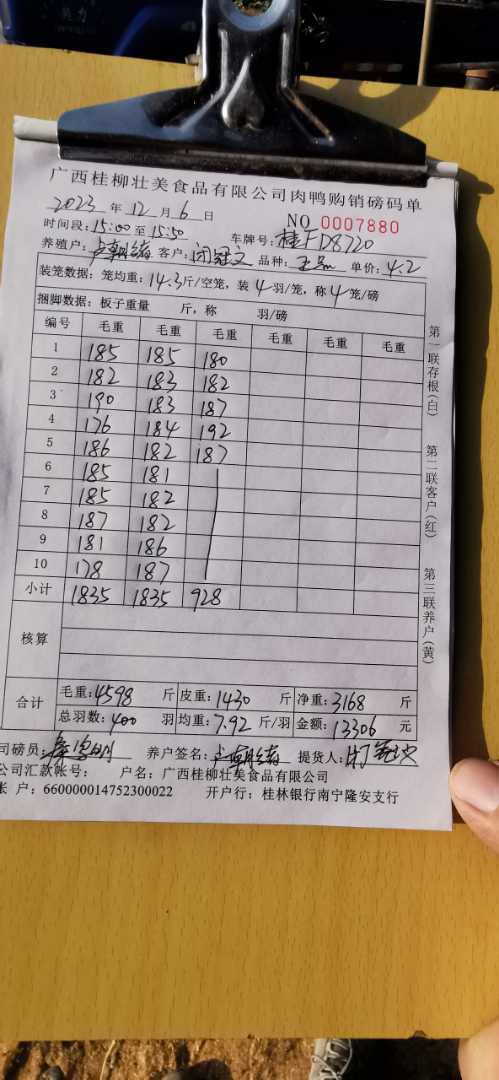 广西桂柳壮美食品有限公司肉鸭购销磅码单
2023 年 12 月 6 日 NO 0007880
时间段: 15:00 至 15:50 车牌号: 桂FD8720
养殖户: 客户: 品种: 单价: 4.2
装笼数据: 笼均重: 14.3 斤/空笼, 装 4 羽/笼, 称 4 笼/磅
捆脚数据: 板子重量 斤, 称 羽/磅
编号 毛重 毛重 毛重 毛重 毛重 毛重
1 185 185 180
2 182 183 182
3 190 183 187
4 176 184 192
5 186 182 187
6 185 181
7 185 182
8 187 182
9 181 186
10 178 187
小计 1835 1835 928
核算
合计 毛重: 4598 斤 皮重: 1430 斤 净重: 3168 斤
总羽数: 400 羽 均重: 7.92 斤/羽 金额: 13306 元
司磅员: 养户签名: 提货人:
公司汇款帐号: 户名: 广西桂柳壮美食品有限公司
账 户: 660000014752300022 开户行: 桂林银行南宁隆安支行
第一联存根(白)
第二联客户(红)
第三联养户(黄)